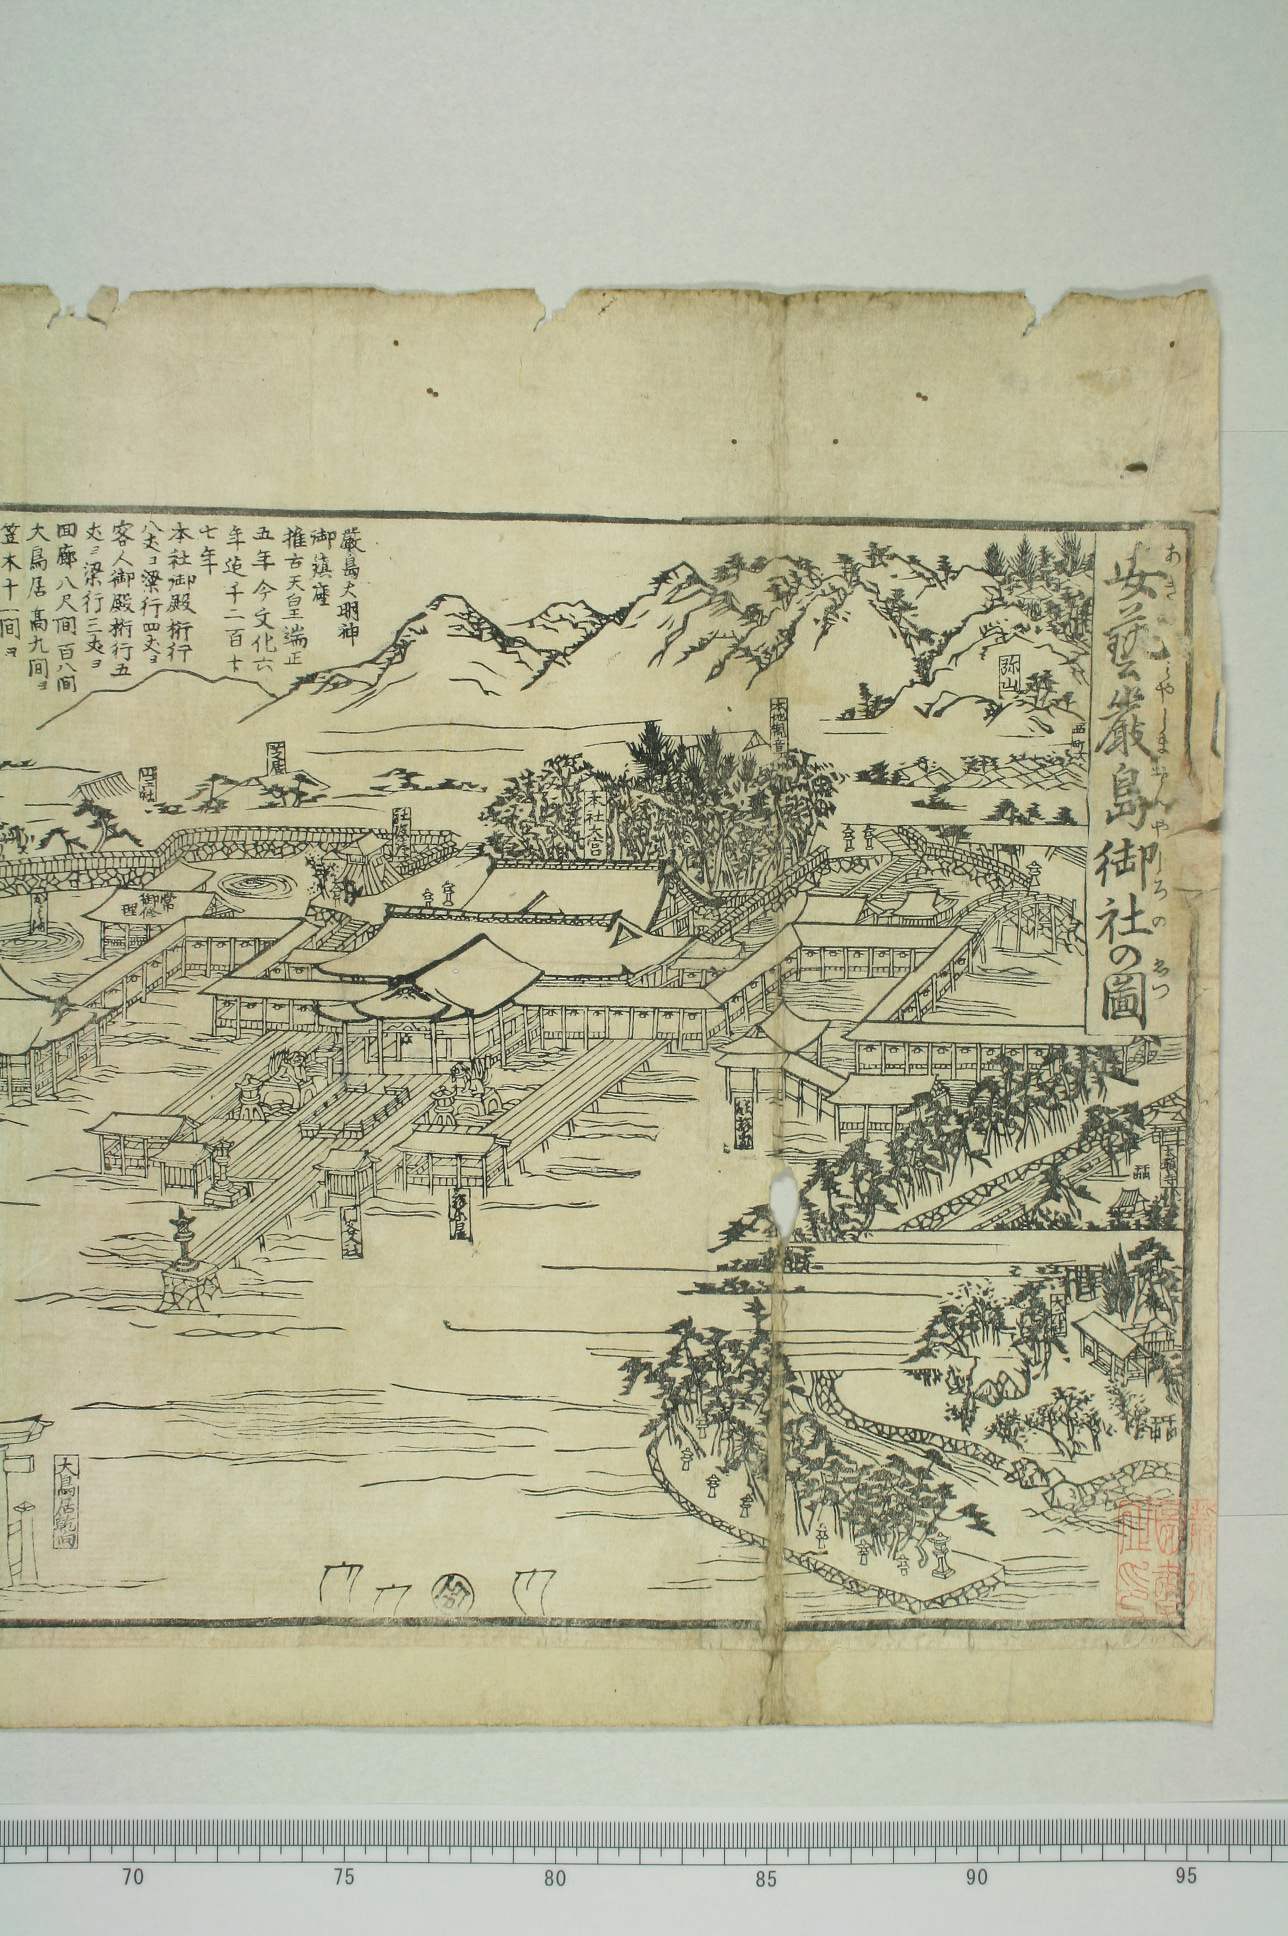 安藝嚴島御社の圖
嚴島大明神
御鎮座
推古天皇端正
五年今文化六
年迄千二百十
七年
本社御殿桁行
八丈ヨ梁行四丈ヨ
客人御殿桁行五
丈ヨ梁行三丈ヨ
回廊八尺間百八間
大鳥居高九間ヨ
笠木十一間ヨ
弥山
西町
本地観音
本社大宮
芝居
四ノ社
常
御修
理
大願寺
客人社
大鳥居
70
75
80
85
90
95